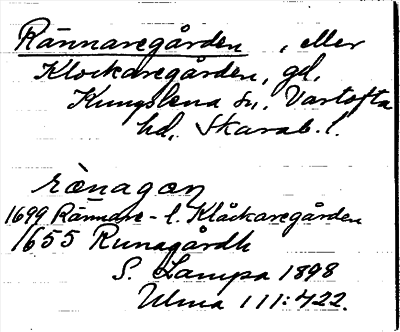 Rännaregården, eller
Klockaregården, gd,
Kungslena sn. Vartofta
hd. Skarab. l.
rènagan
1699 Rännare- l. Klåckaregården
1655 Runagårdh
S. Lampa 1898
Ulma 111:422.